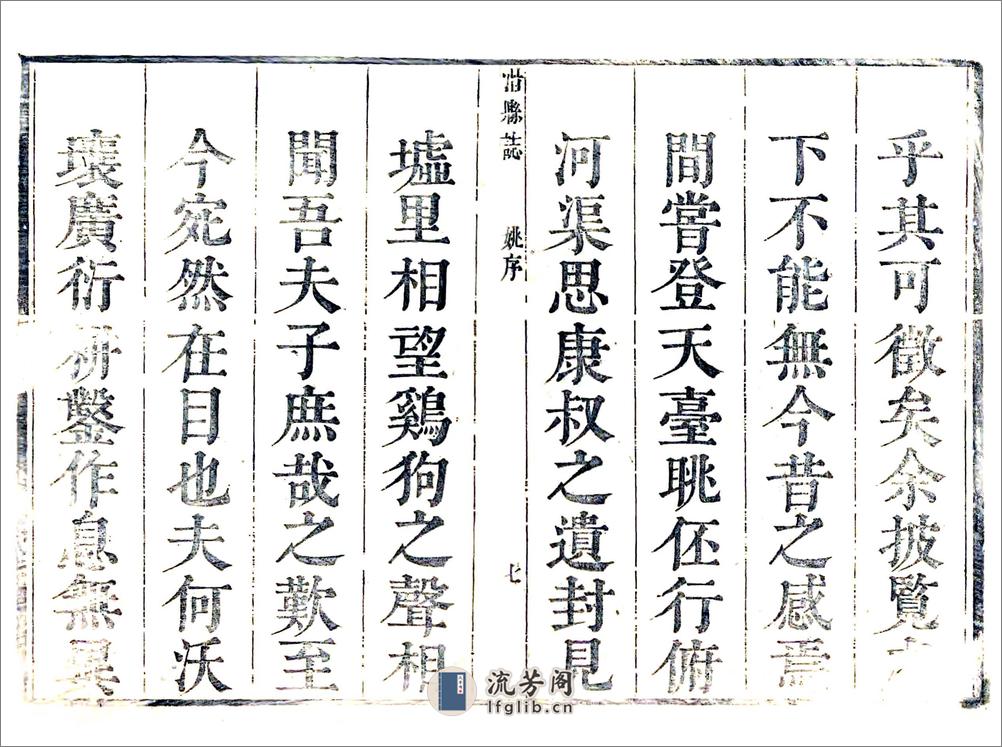 乎其可徵矣余披覽之
下不能無今昔之感焉
間嘗登天臺眺伾行俯
河渠思康叔之遺封見
滑縣誌 姚序 七
墟里相望鷄狗之聲相
聞吾夫子庶哉之歎至
今宛然在目也夫何沃
壤廣衍畊鑿作息無異
流芳阁
lfglib.cn